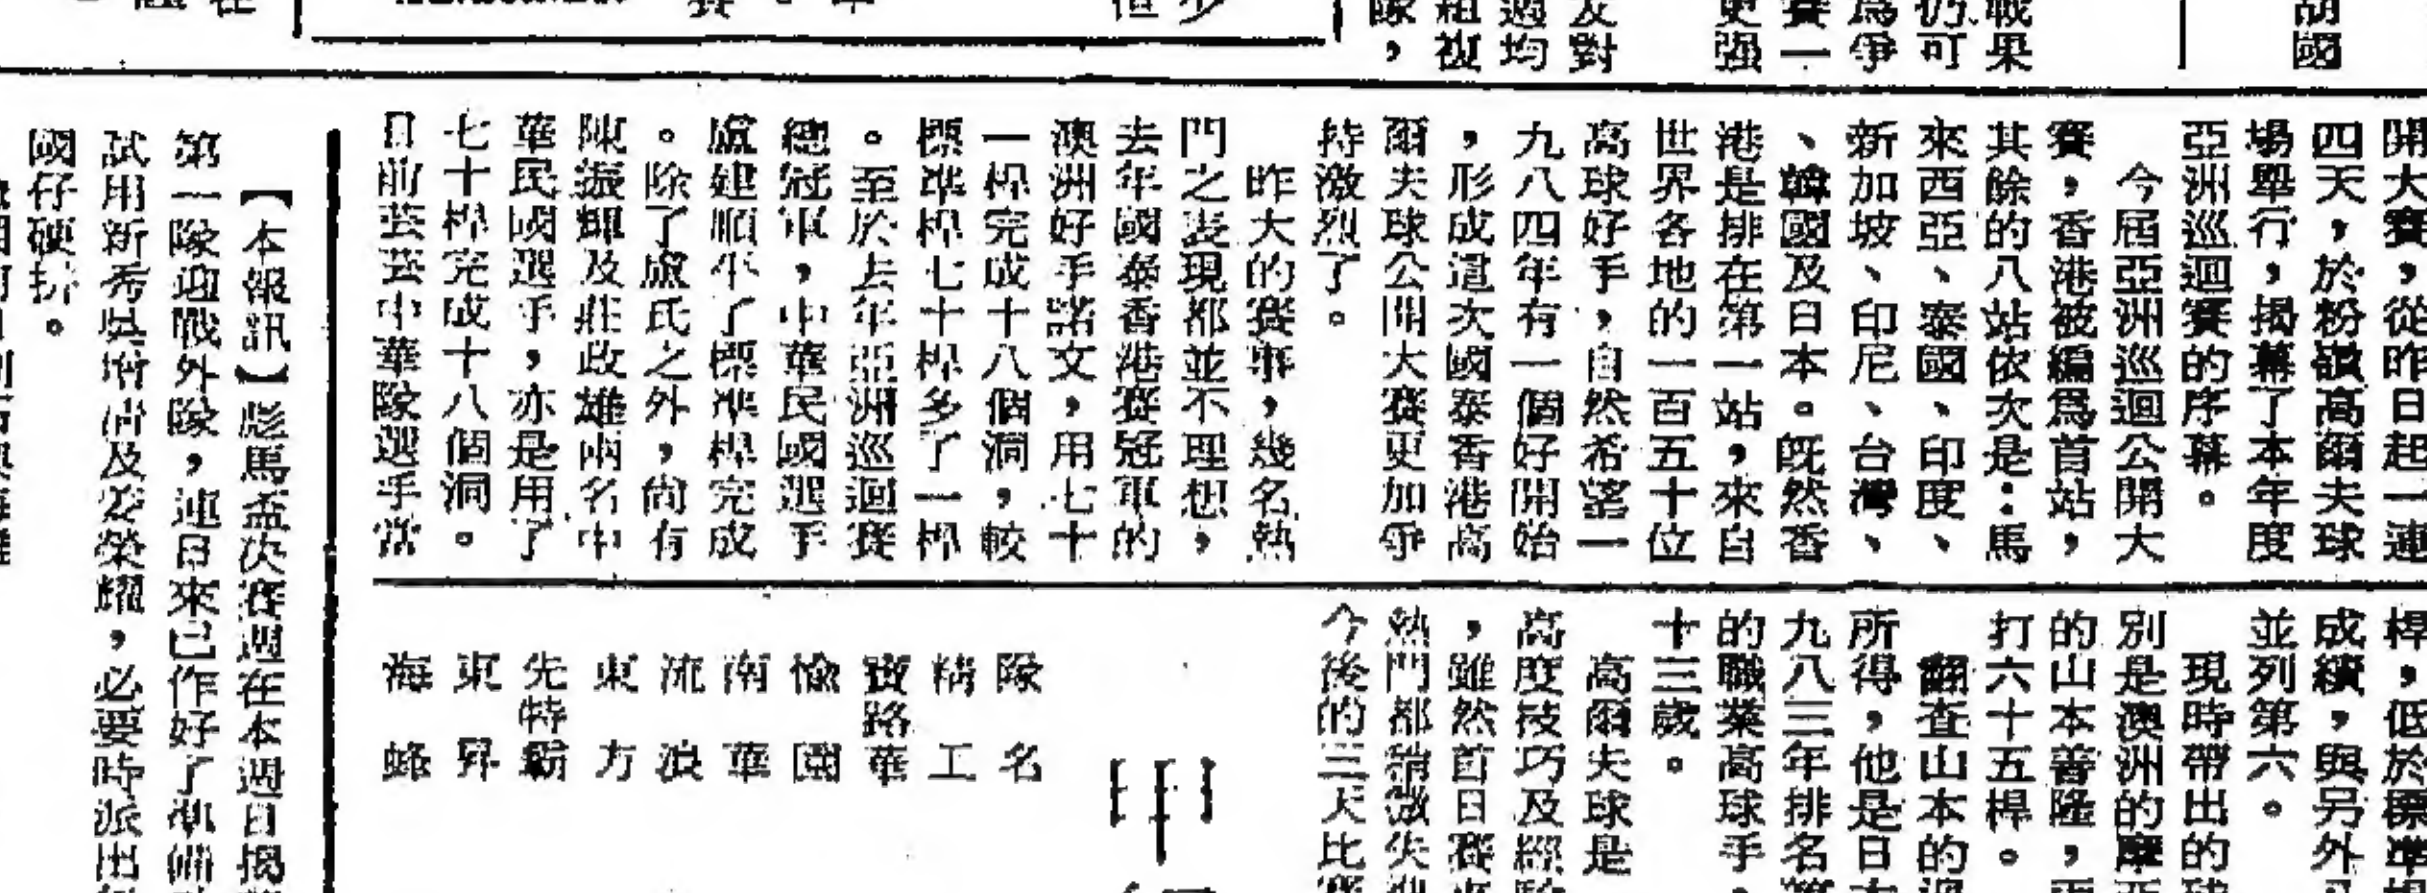 胡國
戰果
仍可
爲爭
賽一
更强
友對
週均
組複
隊，
開大賽，從昨日起一連
四天，於粉嶺高爾夫球
場舉行，揭幕了本年度
亞洲巡迴賽的序幕。
今屆亞洲巡迴公開大
賽，香港被編爲首站，
其餘的八站依次是：馬
來西亞、泰國、印度、
新加坡、印尼、台灣、
、韓國及日本。既然香
港是排在第一站，來自
世界各地的一百五十位
高球好手，自然希望一
九八四年有一個好開始
，形成這次國泰香港高
爾夫球公開大賽更加爭
持激烈了。
昨大的賽事，幾名熱
門之表現都並不理想，
去年國泰香港賽冠軍的
澳洲好手諾文，用七十
一桿完成十八個洞，較
標準桿七十桿多了一桿
。至於去年亞洲巡迴賽
總冠軍，中華民國選手
盧建順平了標準桿完成
。除了盧氏之外，尚有
陳振輝及莊政雄兩名中
華民國選手，亦是用了
七十桿完成十八個洞。
目前芸芸中華隊選手當
桿，低於標準
成績，與另外
並列第六。
現時帶出的
別是澳洲的
的山本善隆，
打六十五桿。
翻查山本的
所得，他是日
九八三年排名
的職業高球手，
十三歲。
高爾夫球是
高度技巧及經
，雖然首日賽
熱門都稍微失
今後的三天比賽
隊名
精工
寶路華
愉園
南華
流浪
東方
先特霸
東昇
海蜂
【本報訊】彪馬盃次賽週在本週日揭
第一隊迎戰外隊，連日來已作好了準備
試用新秀吳增清及
榮耀，必要時派出
國仔硬拚。